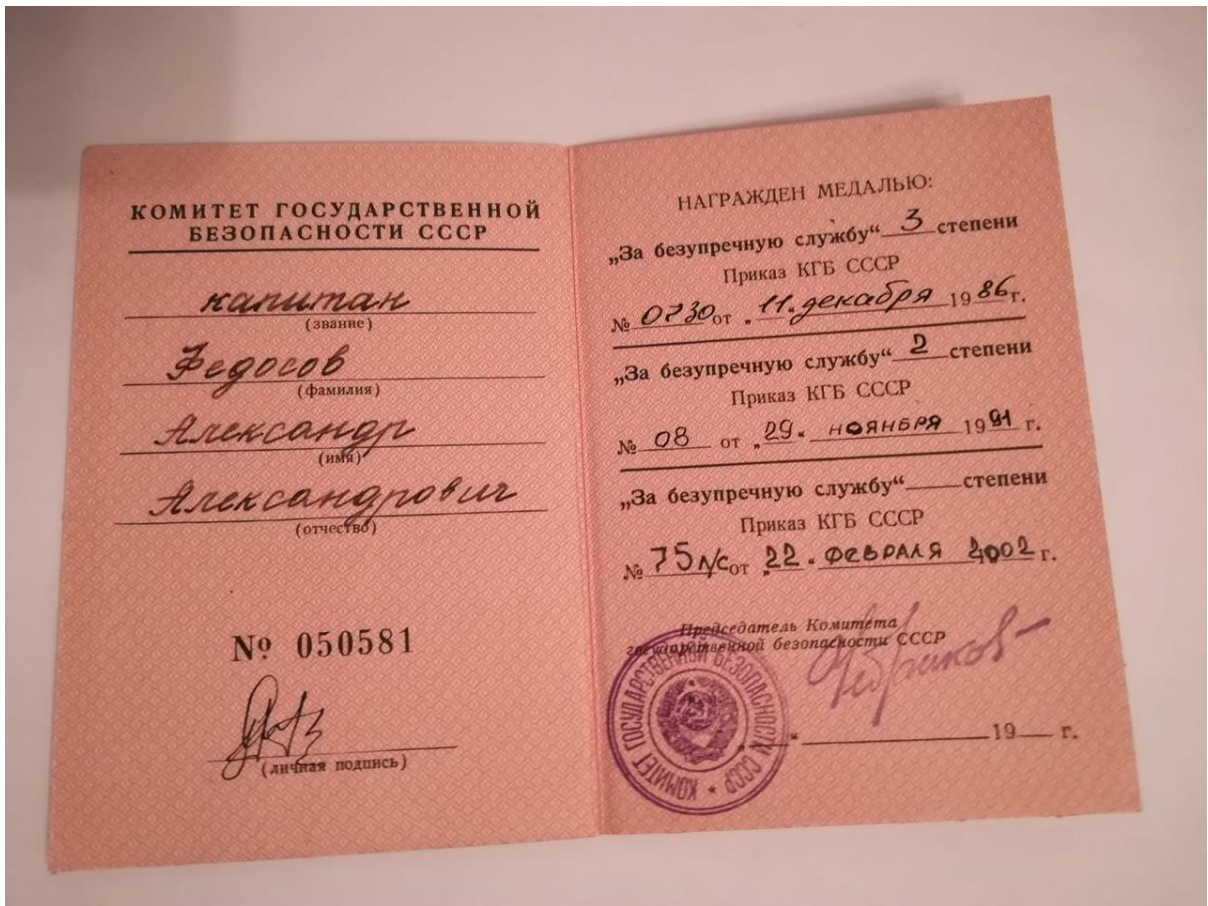 КОМИТЕТ ГОСУДАРСТВЕННОЙ
БЕЗОПАСНОСТИ СССР
капитан
(звание)
Федосов
(фамилия)
Александр
(имя)
Александрович
(отчество)
№ 050581
(личная подпись)
НАГРАЖДЕН МЕДАЛЬЮ:
„За безупречную службу“ 3 степени
Приказ КГБ СССР
№ 0730 от „11“ декабря 1986 г.
„За безупречную службу“ 2 степени
Приказ КГБ СССР
№ 08 от „29“ НОЯБРЯ 1991 г.
„За безупречную службу“ степени
Приказ КГБ СССР
№ 75 л/с от „22“ ФЕВРАЛЯ 2002 г.
Председатель Комитета
государственной безопасности СССР
Чебриков
„ “ 19 г.
КОМИТЕТ ГОСУДАРСТВЕННОЙ БЕЗОПАСНОСТИ СССР